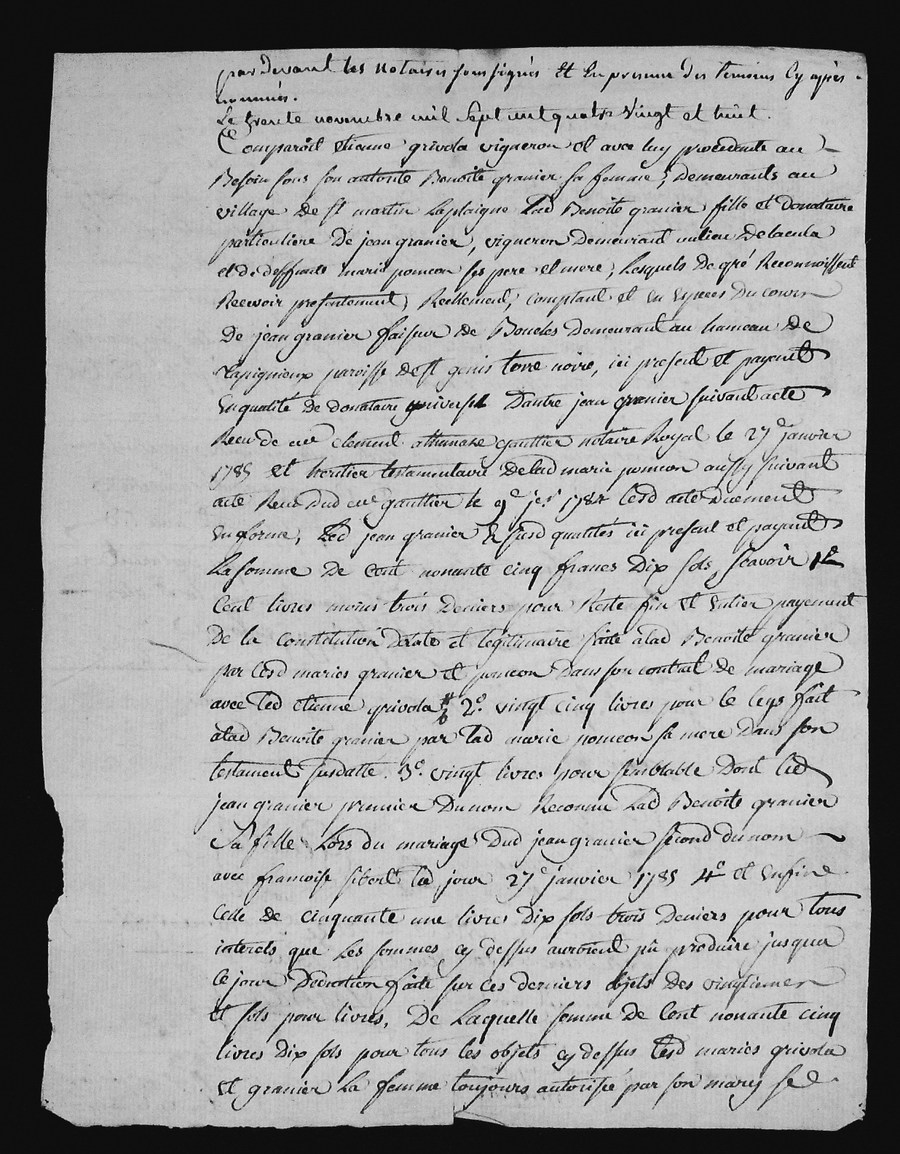 par Devant les Notaires soussignés et En presence des temoins Cy après
nommés.
Le trente novembre mil Sept cent quatre Vingt et huit.
Comparoit etienne grivola vigneron et avec luy procedante au
Besoin sous son autorité Benoite granier sa femme, Demeurants au
village De st martin Laplaigne Lad Benoite granier fille et donataire
particuliere De jean granier, vigneron Demeurant au lieu De lacula
et de deffunte marie poncon ses pere et mere, Lesquels De gré Reconnoissent
Recevoir presentement, Reellement, comptant et en Especes Du cours
De jean granier faiseur de Boucles Demeurant au hameau De
Lapignieux paroisse De st genis terre noire, ici present et payent
En qualité de donataire universel D'autre jean granier suivant acte
Recu de me clement athanaze gauttier notaire Royal le 27e janvier
1785 et heritier testamentaire De lad marie poncon aussy suivant
acte Recu Dud me gauttier le 9e jer 1784 lesd acte Duement
En forme, Led jean granier Es susd qualités ici present et payent
La somme De Cent nonante cinq francs Dix sols, scavoir 1e
Cent livres moins trois Deniers pour Reste fin et Entier payement
De la Constitution Dotale et legitimaire faite alad Benoite granier
par lesd mariés granier et poncon Dans son contrat de mariage
avec led etienne grivola 2e. vingt cinq livres pour le legs fait
alad Benoite granier par lad marie poncon sa mere Dans son
testament susdatte. 3e. vingt livres pour semblable Dont led
jean granier premier Du nom Reconnu Lad Benoite granier
Sa fille Lors du mariage Dud jean granier second du nom
avec francoise sibert led jour 27e janvier 1785 4e et Enfin
Celle de cinquante une livres Dix sols trois Deniers pour tous
interets que Les sommes cy dessus auroient pû produire jusqua
Ce jour Deduction faite sur ces derniers objets Des vingtiemes
et sols pour livres, De Laquelle somme De Cent nonante cinq
livres Dix sols pour tous les objets cy dessus lesd mariés grivola
et granier La femme toujours autorisée par son mary se